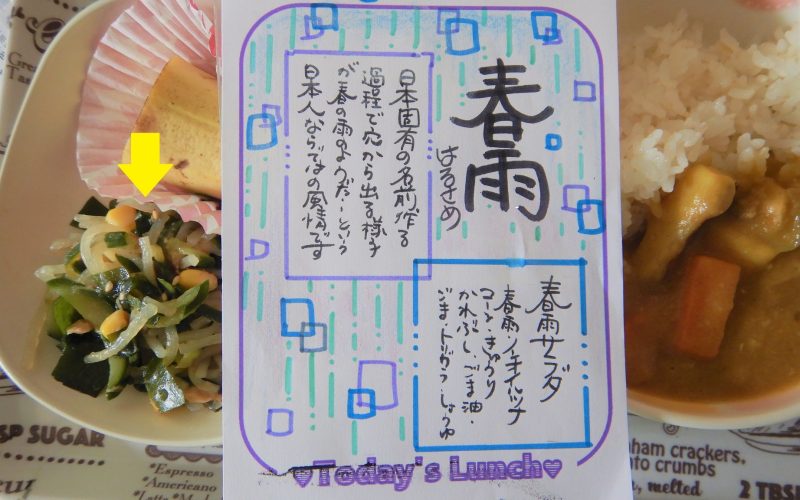 春雨
はるさめ
日本固有の名前作る
過程で穴から出る様子
が春の雨のようだ…という
日本人ならではの風情です
春雨サラダ
春雨・ノンオイルツナ
コーン・きゅうり
ごま油・
ごま・トリガラ・しょうゆ
♥Today's Lunch♥
SP SUGAR
*Espresso
*Americano
*Latte
ham crackers,
crumbs
melted
2 TBS